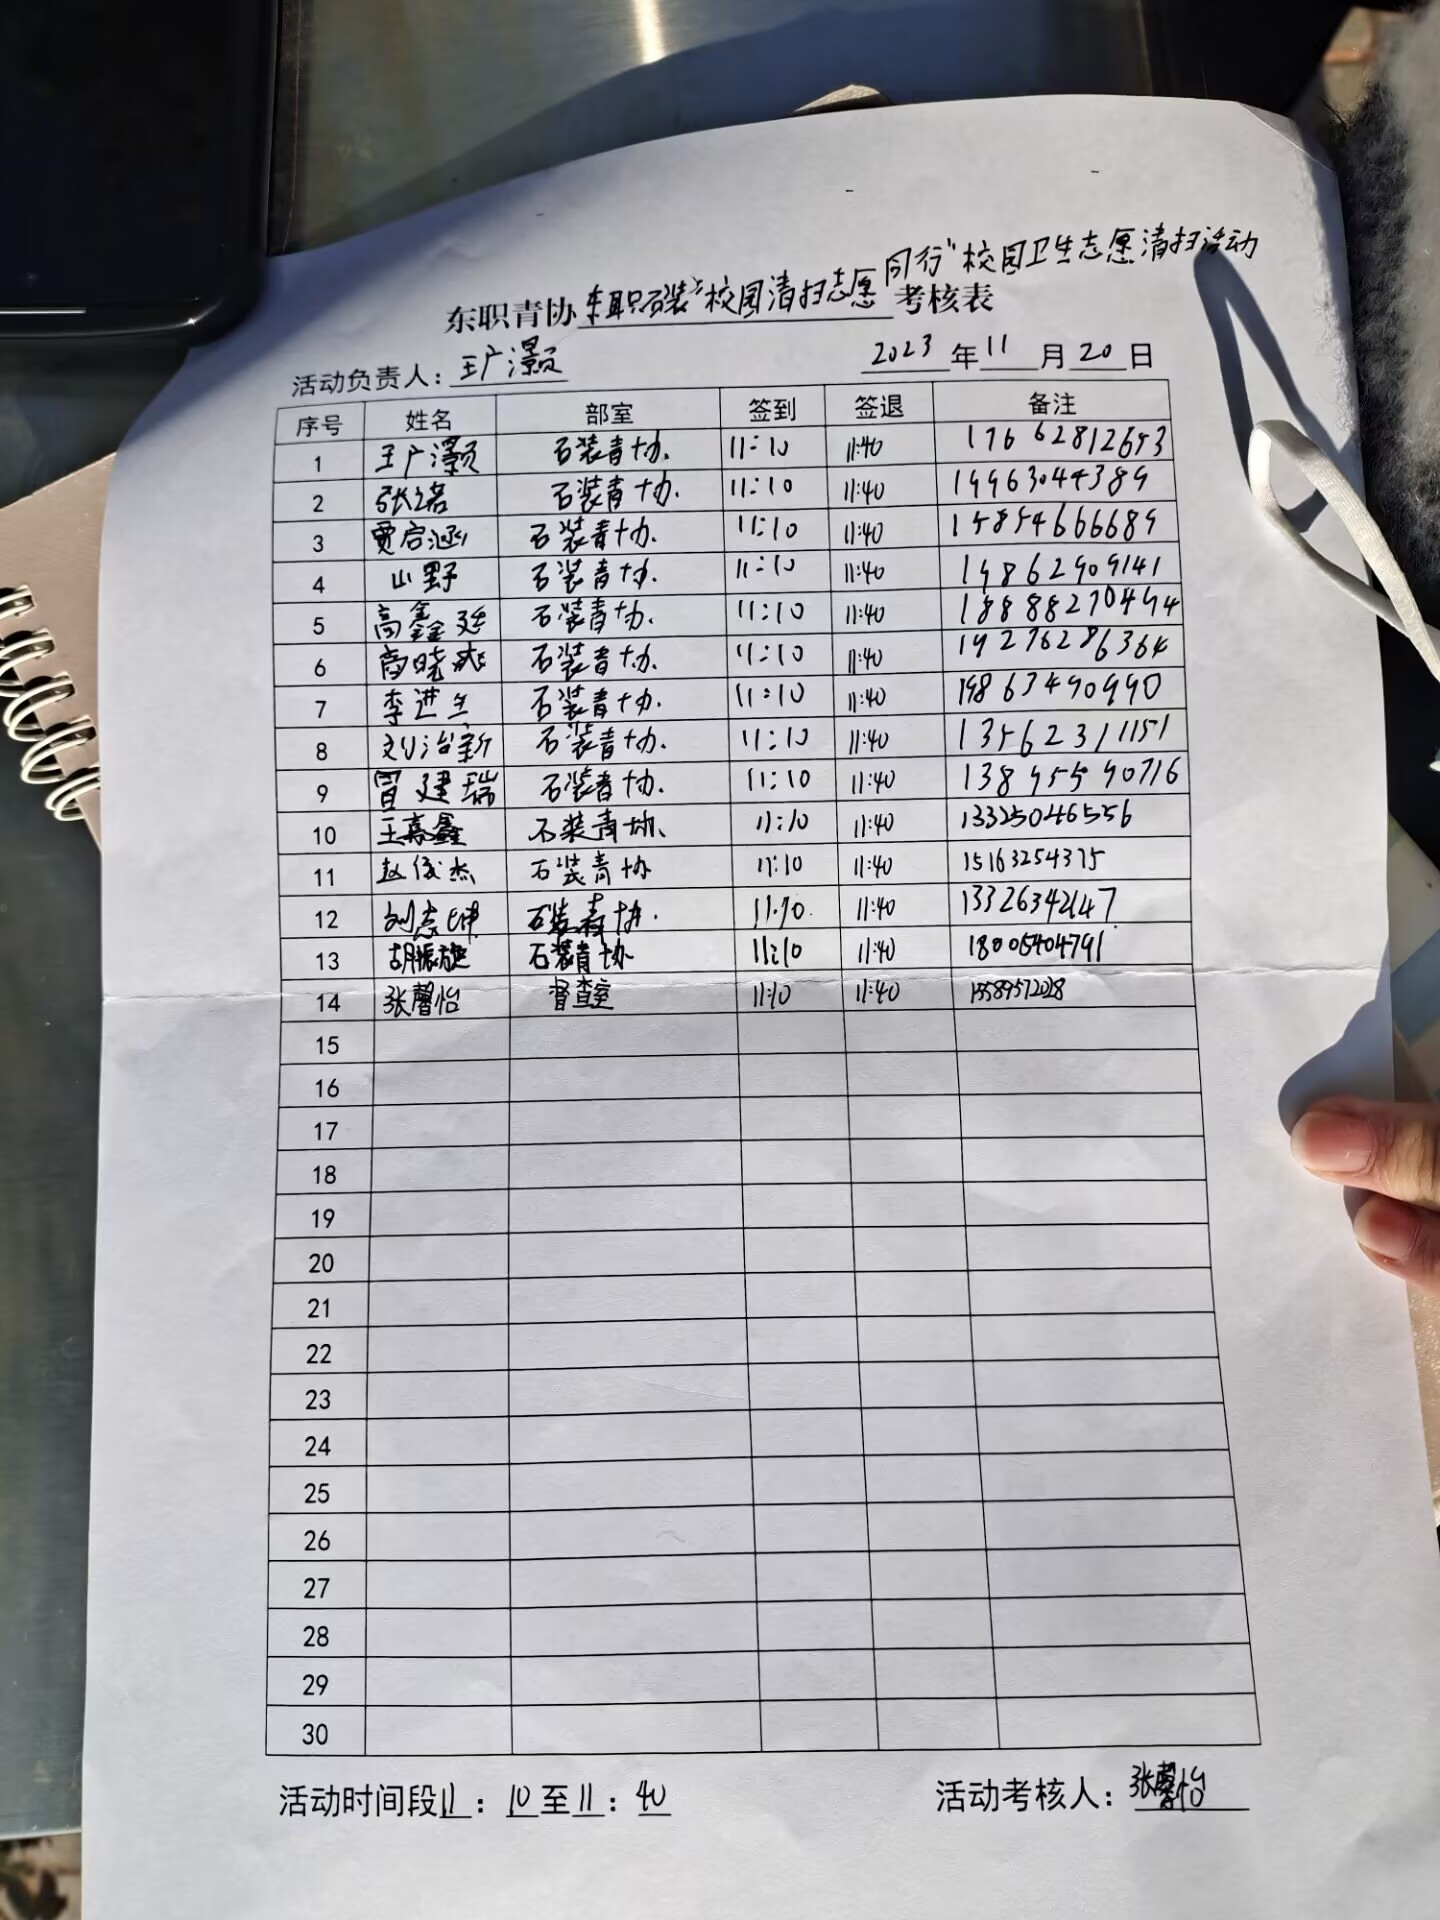 同行"校园卫生志愿清扫活动
东职青协东职石装"校园清扫志愿考核表
活动负责人：王广灏 2023年11月20日
序号 姓名 部室 签到 签退 备注
1 王广灏 石装青协. 11:10 11:40 17662812653
2 张诺 石装青协. 11:10 11:40 19963044389
3 贾启涵 石装青协. 11:10 11:40 15854666689
4 山野 石装青协. 11:10 11:40 19862909141
5 高鑫廷 石装青协. 11:10 11:40 18888270494
6 商晓 石装青协. 11:10 11:40 19276286364
7 李进 石装青协. 11:10 11:40 19863490990
8 刘治新 石装青协. 11:10 11:40 13562311151
9 建瑞 石装青协. 11:10 11:40 13895590716
10 王嘉鑫 石装青协. 11:10 11:40 13325046556
11 赵俊杰 石装青协 11:10 11:40 15163254375
12 刘志坤 石装青协. 11:10. 11:40 13326342147
13 胡振旋 石装青协 11:10 11:40 18005404791
14 张馨怡 督查室 11:10 11:40 15589572028
15
16
17
18
19
20
21
22
23
24
25
26
27
28
29
30
活动时间段11：10至11：40 活动考核人：张馨怡